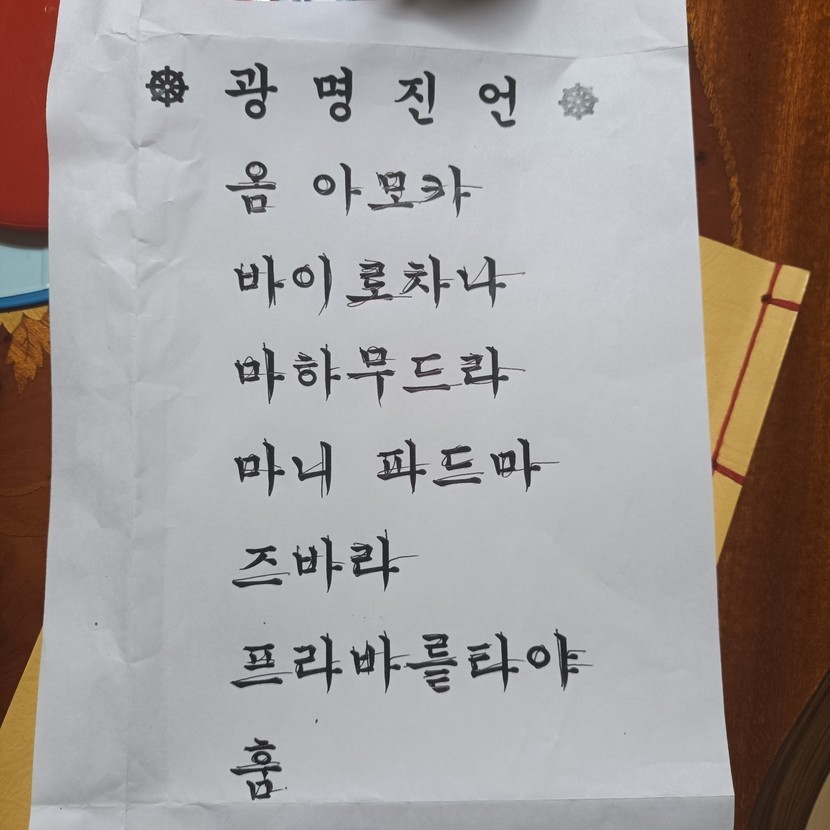 광 명 진 언
옴 아모카
바이로차나
마하무드라
마니 파드마
즈바라
프라바를타야
훔